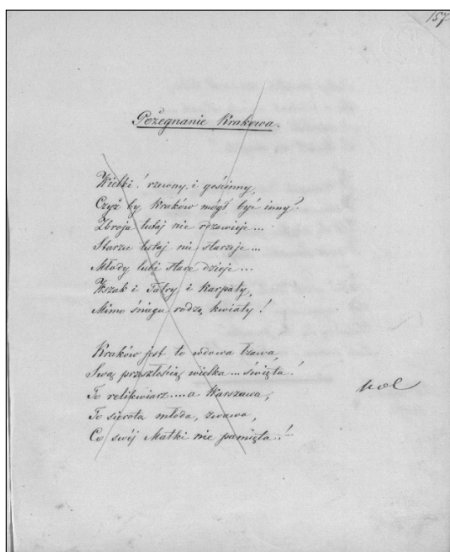 157
Pożegnanie Krakowa.
Wielki! rzewny, i gościnny,
Czyż by Kraków mógł być inny?
Zbroja tutaj nie rdzewieje...
Starzec tutaj nie starzeje...
Młody lubi stare dzieje...
Wszak i Tatry i Karpaty,
Mimo śniegu rodzą kwiaty!
Kraków jest to wdowa łzawa,
Swą przeszłością wielka... święta!
To relikwiarz.... a Warszawa,
To sierota młoda, żwawa,
Co swéj Matki nie pamięta..!